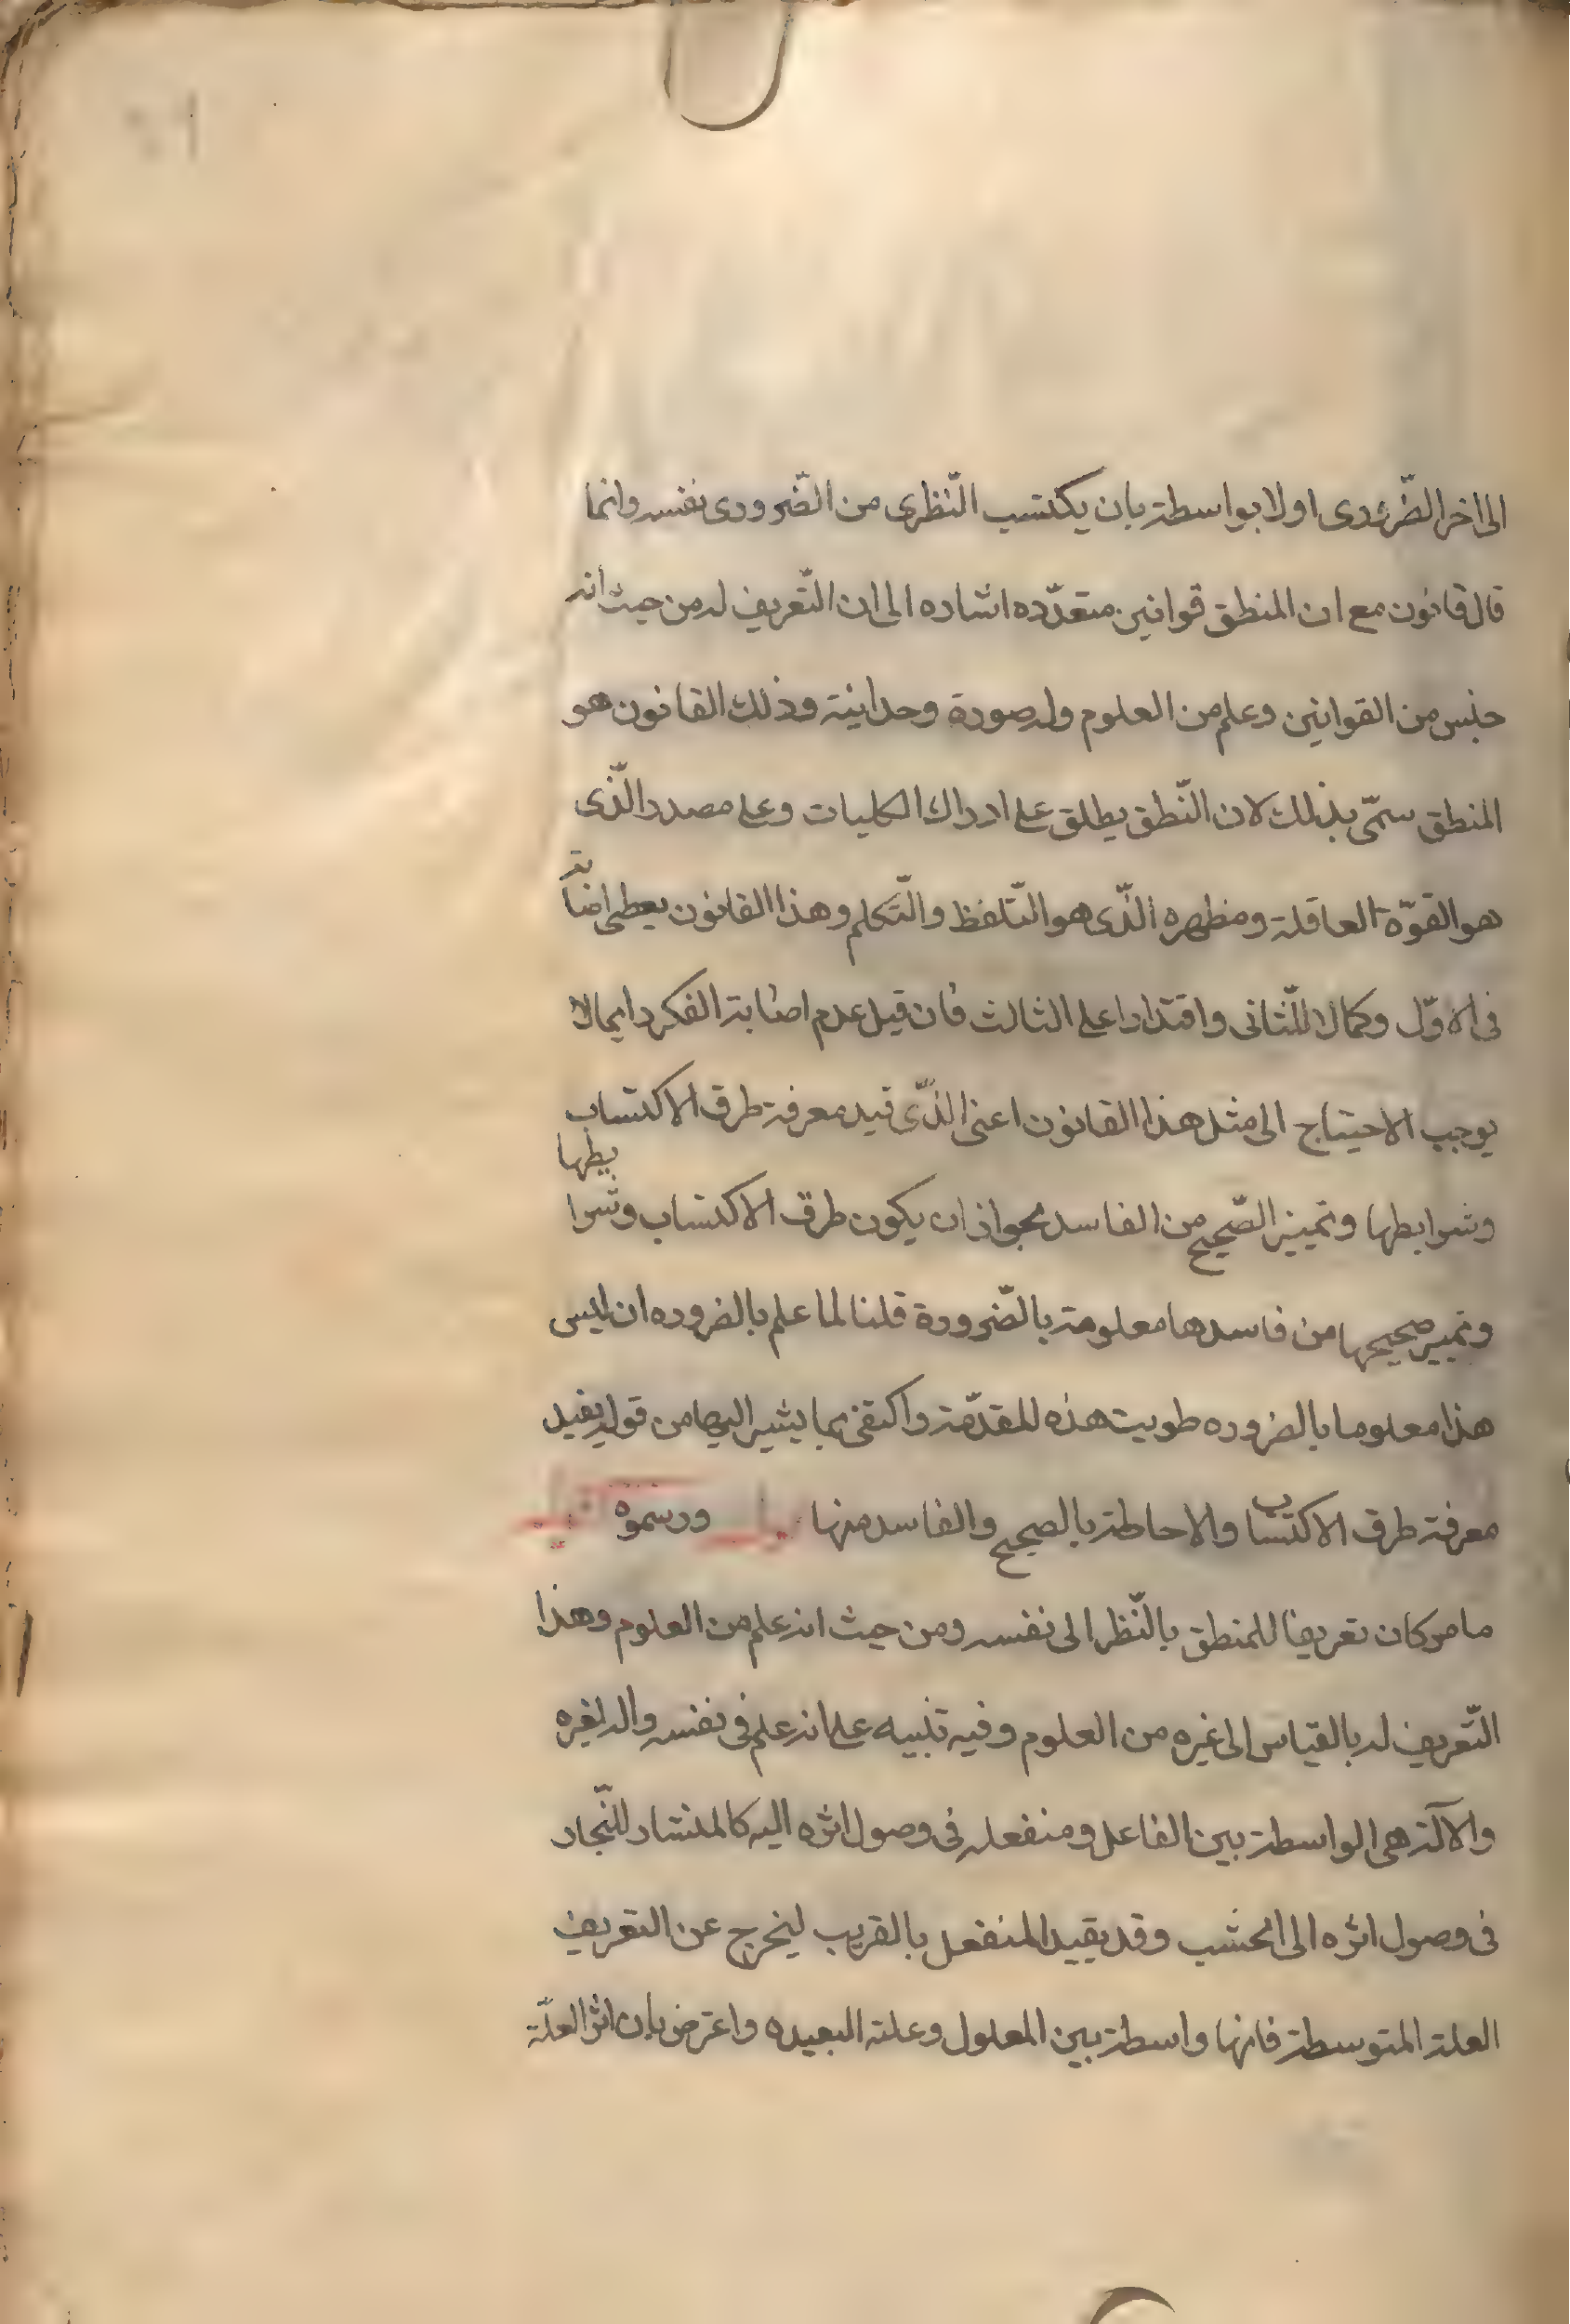 الى اخر الضّرورى اولا بواسطة بان يكتسب النّظرى من الضّرورى نفسه وانما
قال قانون مع ان المنطق قوانين متعدّده اشاره الى ان التّعريف له من حيث انه
جنس من القوانين وعلم من العلوم وله صورة وحدانية وذلك القانون هو
المنطق سمّى بذلك لان النّطق يطلق على ادراك الكليات وعلى مصدر الّذى
هو القوّة العاقلة ومظهره الّذى هو التّلفظ والتّكلم وهذا القانون يعطى اصابة
فى الاوّل وكمالا للثّانى واقتدارا على الثالث فان قيل عدم اصابة الفكر دايما لا
يوجب الاحتياج الى مثل هذا القانون اعنى الّذى فيه معرفة طرق الاكتساب
وشرايطها وتمييز الصّحيح من الفاسد بجواز ان يكون طرق الاكتساب وشرايطها
وتمييز صحيحها من فاسدها معلومة بالضّرورة قلنا لما علم بالضروره ان ليس
هذا معلوما بالضروره طويت هذه للمقدّمة واكتفى بما يشير اليها من قوله يفيد
معرفة طرق الاكتساب والاحاطة بالصحيح والفاسد منها ورسموه
ما مر كان تعريفا للمنطق بالنّظر الى نفسه ومن حيث انه علم من العلوم وهذا
التّعريف له بالقياس الى غيره من العلوم وفيه تنبيه على انه علم فى نفسه والة لغيره
والآلة هى الواسطة بين الفاعل ومنفعله فى وصول اثره اليه كالمنشار للنّجار
فى وصول اثره الى الخشب وقد يقيد المنفعل بالقريب ليخرج عن التعريف
العلة المتوسطة فانها واسطة بين المعلول وعلته البعيده واعترض بان اثر العلّة